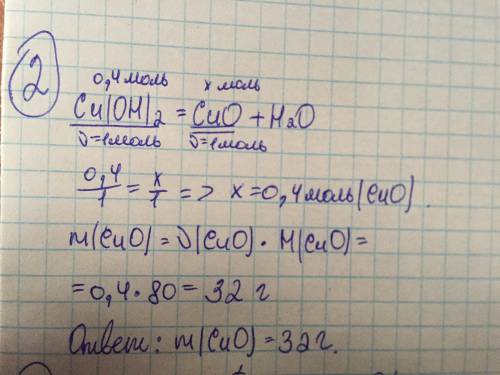 2
0,4 моль х моль
Cu(OH)2 = CuO + H2O
ν=1моль ν=1моль
0,4/1 = x/1 => x=0,4 моль(CuO).
m(CuO) = ν(CuO) · M(CuO)=
=0,4·80= 32 г
Ответ: m(CuO)=32г.